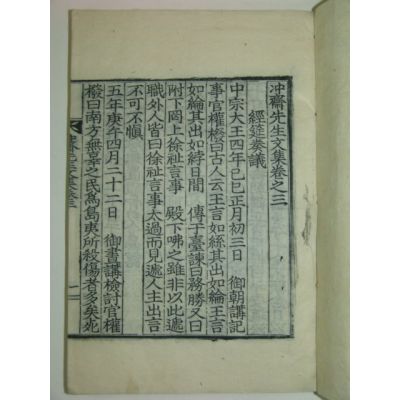 冲齋先生文集卷之三
經筵奏議
中宗大王四年己巳正月初三日　御朝講記
事官權橃曰古人云王言如絲其出如綸王言
如綸其出如綍日間　傳于臺諫曰務勝又曰
附下罔上徐祉言事　殿下咈之雖非以此遞
職外人皆曰徐祉言事太過而見遞人主出言
不可不愼
五年庚午四月二十二日　御晝講檢討官權
橃曰南方無辜之民爲島夷所殺傷者多矣死